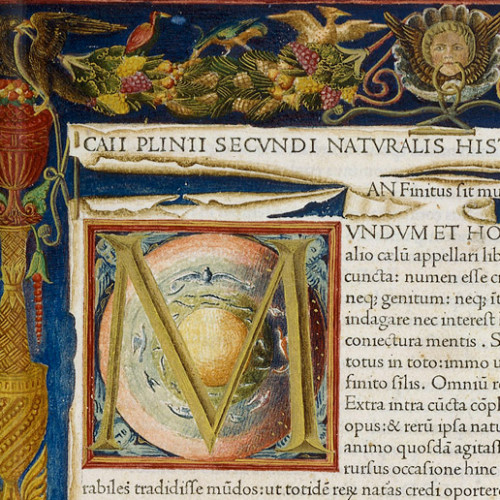 CAII PLINII SECVNDI NATVRALIS HIST
AN Finitus ſit mu
M
VNDVM ET HO
alio cælũ appellari lib
cuncta: numen eſſe cr
neq; genitum: neq;
indagare nec intereſt
coniectura mentis . S
totus in toto:immo u
finito ſilis. Omniũ r
Extra intra cũcta cõpl
opus:& rerũ ipſa natu
animo quoſdã agitaſ
rurſus occaſione hinc
rabiles tradidiſſe mũdos:ut totidẽ reꝝ natas credi oporte